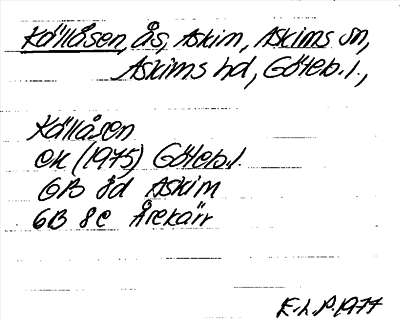 Källåsen, ås, Askim, Askims sn,
Askims hd, Göteb. l.,
Källåsen
ek (1975) Göteb. l.
6B 8d Askim
6B 8e Årekärr
E.L.P. 1977